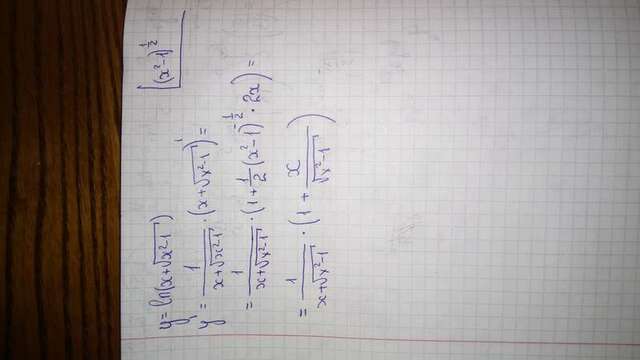 y = ln(x+√(x²-1)) (x²-1)^(1/2)
y' = 1/(x+√(x²-1)) · (x+√(x²-1))' =
= 1/(x+√(x²-1)) · (1+1/2(x²-1)^(-1/2) · 2x) =
= 1/(x+√(x²-1)) · (1 + x/√(x²-1))